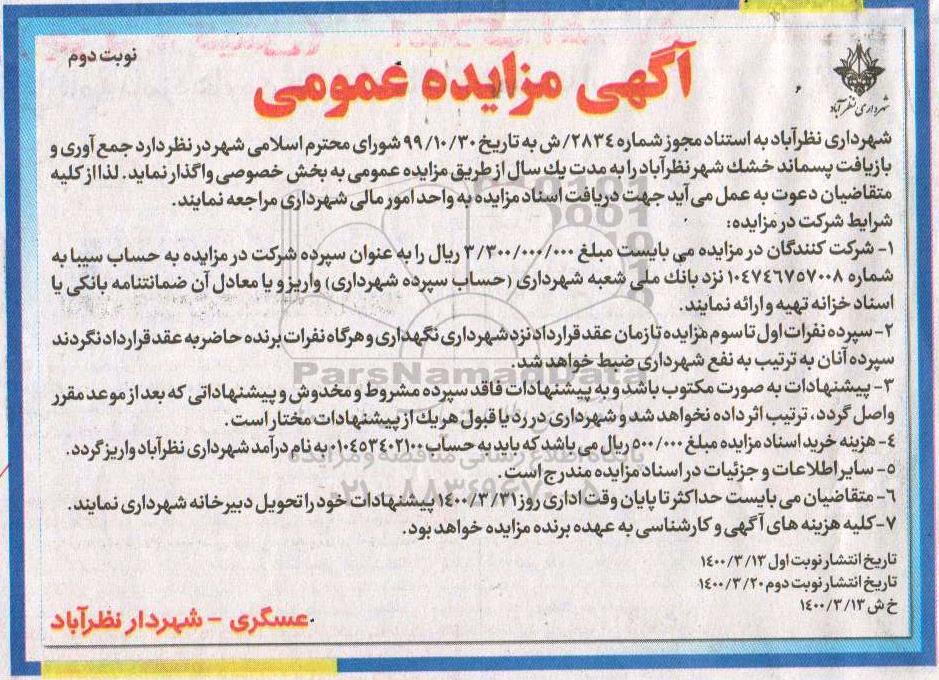 نوبت دوم
آگهی مزایده عمومی
شهرداری نظرآباد
شهرداری نظرآباد به استناد مجوز شماره ۲۸۳۴/ش به تاریخ ۹۹/۱۰/۳۰ شورای محترم اسلامی شهر در نظر دارد جمع آوری و
بازیافت پسماند خشك شهر نظرآباد را به مدت یك سال از طریق مزایده عمومی به بخش خصوصی واگذار نماید. لذا از کلیه
متقاضیان دعوت به عمل می آید جهت دریافت اسناد مزایده به واحد امور مالی شهرداری مراجعه نمایند.
شرایط شرکت در مزایده:
۱- شرکت کنندگان در مزایده می بایست مبلغ ۳/۳۰۰/۰۰۰/۰۰۰ ریال را به عنوان سپرده شرکت در مزایده به حساب سیبا به
شماره ۱۰۴۷۴۶۷۵۷۰۰۸ نزد بانك ملی شعبه شهرداری (حساب سپرده شهرداری) واریز و یا معادل آن ضمانتنامه بانکی یا
اسناد خزانه تهیه و ارائه نمایند.
۲- سپرده نفرات اول تا سوم مزایده تا زمان عقد قرارداد نزد شهرداری نگهداری و هرگاه نفرات برنده حاضر به عقد قرارداد نگردند
سپرده آنان به ترتیب به نفع شهرداری ضبط خواهد شد
۳- پیشنهادات به صورت مکتوب باشد و به پیشنهادات فاقد سپرده مشروط و مخدوش و پیشنهاداتی که بعد از موعد مقرر
واصل گردد، ترتیب اثر داده نخواهد شد و شهرداری در رد یا قبول هر یك از پیشنهادات مختار است.
۴- هزینه خرید اسناد مزایده مبلغ ۵۰۰/۰۰۰ ریال می باشد که باید به حساب ۰۱۰۴۵۳۴۰۲۱۰۰ به نام درآمد شهرداری نظرآباد واریز گردد.
۵- سایر اطلاعات و جزئیات در اسناد مزایده مندرج است.
۶- متقاضیان می بایست حداکثر تا پایان وقت اداری روز ۱۴۰۰/۳/۳۱ پیشنهادات خود را تحویل دبیرخانه شهرداری نمایند.
۷- کلیه هزینه های آگهی و کارشناسی به عهده برنده مزایده خواهد بود.
تاریخ انتشار نوبت اول ۱۴۰۰/۳/۱۳
تاریخ انتشار نوبت دوم ۱۴۰۰/۳/۲۰
خ ش ۱۴۰۰/۳/۱۳
عسگری - شهردار نظرآباد
ParsNamadData